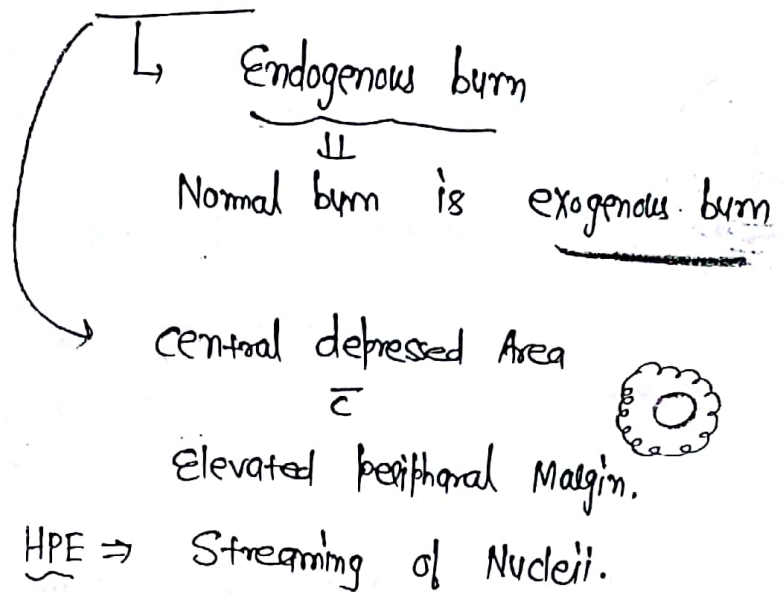 Endogenous burn
Normal burn is exogenous burn
Central depressed Area
c̅
Elevated peripharal Margin.
HPE ⇒ Streaming of Nucleii.